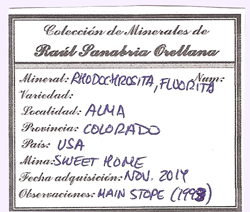 Colección de Minerales de
Raúl Sanabria Orellana
Mineral: RHODOCHROSITA, FLUORITA Num:
Variedad:
Localidad: ALMA
Provincia: COLORADO
País: USA
Mina: SWEET HOME
Fecha adquisición: NOV. 2014
Observaciones: MAIN STOPE (1993)